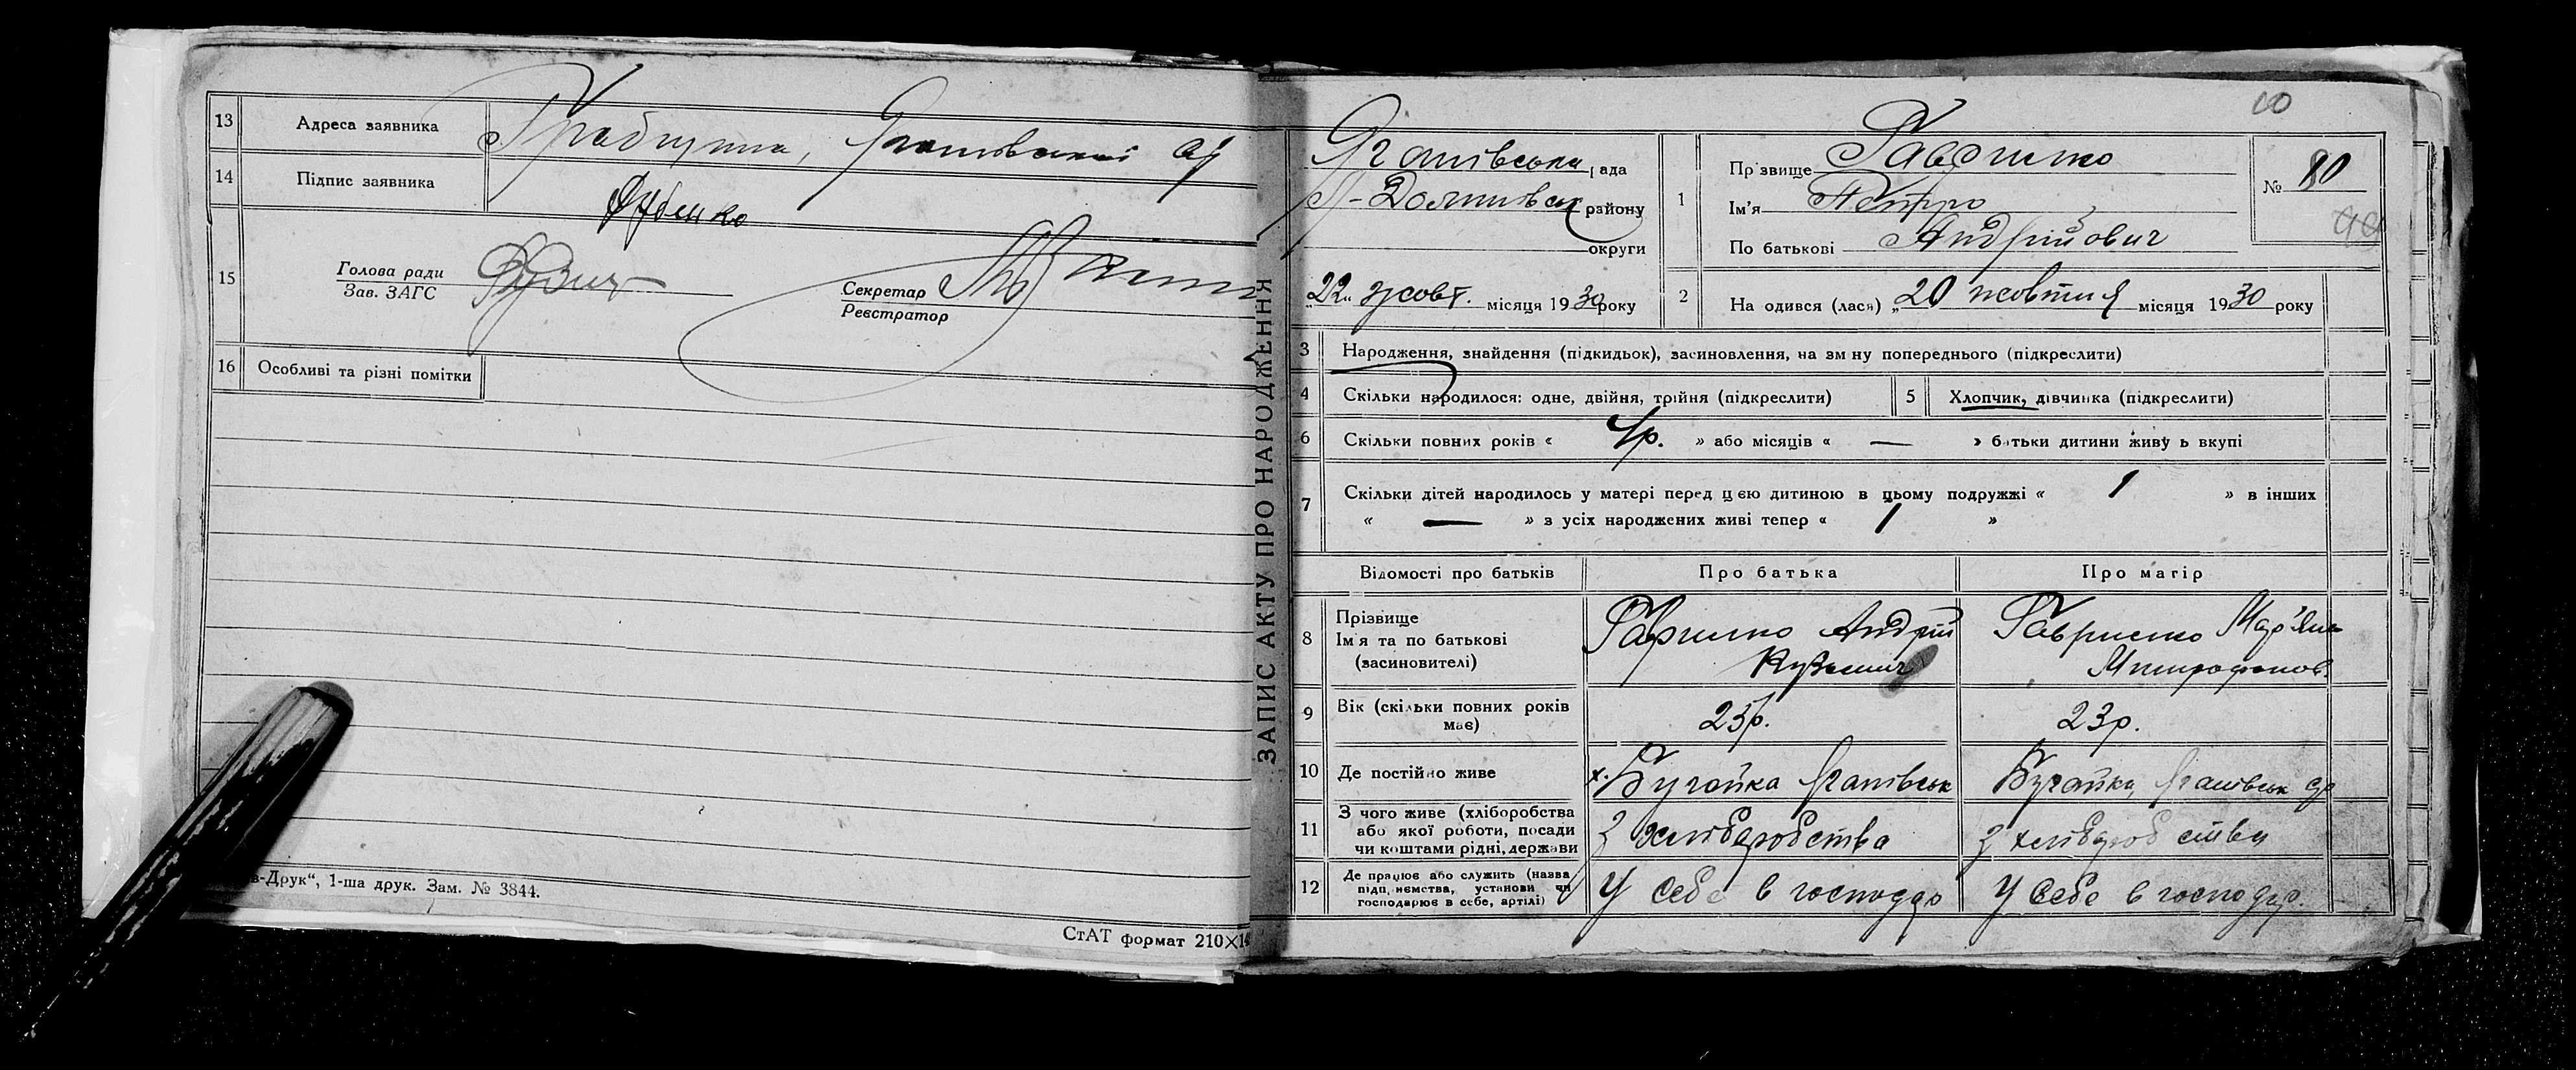 13 Адреса заявника
14 Підпис заявника
15 Голова ради
Зав. ЗАГС
Секретар
Реєстратор
16 Особливі та різні помітки
в-Друк“, 1-ша друк. Зам. № 3844.
СтАТ формат 210×14
ЗАПИС АКТУ ПРО НАРОДЖЕННЯ
10
рада
району
округи
„22„ жовт. місяця 1930 року
1 Прізвище Гавришко
Ім'я Петро
По батькові Андрійович
№ 80
2 На одився (лася) „20 жовтня місяця 1930 року
3 Народження, знайдення (підкидьок), засиновлення, на зм ну попереднього (підкреслити)
4 Скільки народилося: одне, двійня, трійня (підкреслити)
5 Хлопчик, дівчинка (підкреслити)
6 Скільки повних років « 4р. » або місяців « — » батьки дитини живу ь вкупі
7 Скільки дітей народилось у матері перед цією дитиною в цьому подружжі « 1 » в інших
« — » з усіх народжених живі тепер « 1 »
Відомості про батьків Про батька Про матір
8 Прізвище
Ім'я та по батькові
(засиновителі)
Гавришко Андрій
Кузьмич
Гавришко Мар'яна
Митрофанов.
9 Вік (скільки повних років
має)
23р. 23р.
10 Де постійно живе х. Бугайка Яганівськ Бугайка, Яганівськ с/р
11 З чого живе (хліборобства
або якої роботи, посади
чи коштами рідні, держави
З хліборобства З хліборобства
12 Де працює або служить (назва
підп, ємства, установи чи
господарює в себе, артілі)
У себе в господар У себе в господар.